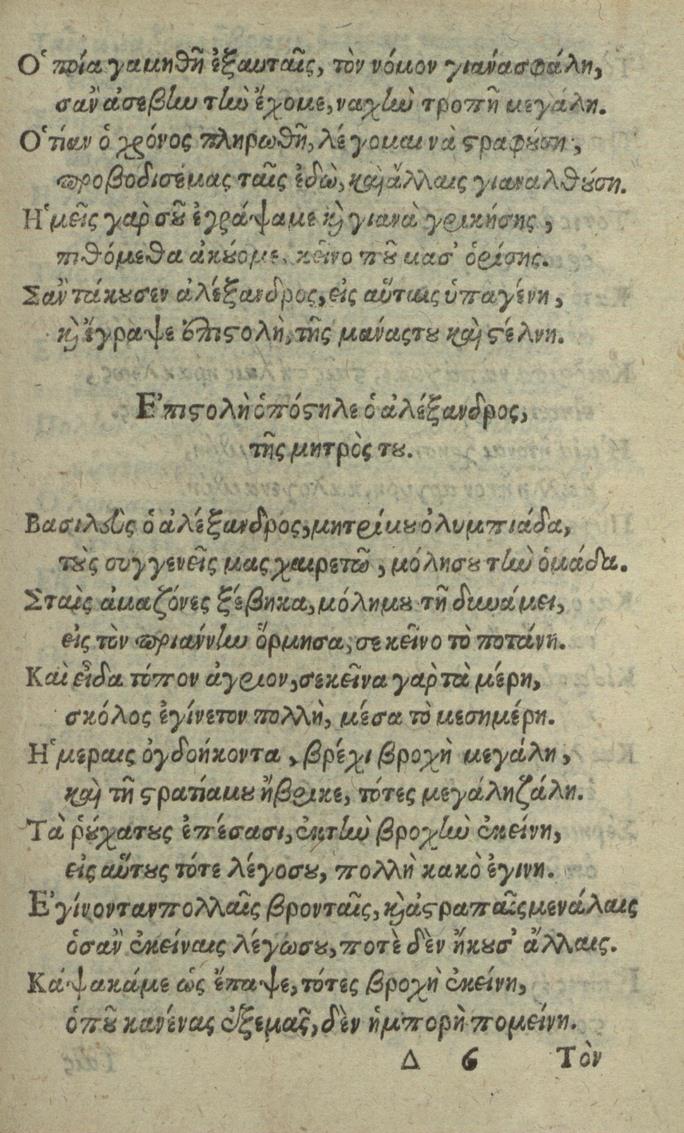 Ὁποία γαμηθῆ ἐξαυταῖς, τὸν νόμον γιανάσφάλη,
σαν ἀσεβὴν τὴν ἔχομε, ναχὴν τροπῆ μεγάλη.
Ὅτίαν ὁ χρόνος πληρωθῆ, λέγομαι νὰ στραφούση,
προβοδισέμας ταῖς ἐδὼ, καὶ ἄλλαις γιαναλθούση.
Ἡμεῖς γαρ σοῦ ἐγράψαμε καὶ γιανὰ γρικήσης,
πιθόμεθα ἀκούομε, κεῖνο ποῦ μας ὁρίσης.
Σαν τάκουσεν ἀλέξανδρος, εἰς αὔτως ὑπαγένη,
καὶ ἔγραψε ἐπιστολὴ, τῆς μάναςτου καὶ στέλνη.
Ἐπιστολὴ ὁπόστηλε ὁ ἀλέξανδρος,
τῆς μητρὸς του.
Βασιλεὺς ὁ ἀλέξανδρος, μητρίμου ὀλυμπιάδα,
τοὺς συγγενεῖς μας χαιρετῶ, μόλησου τὴν ὁμάδα.
Σταὶς ἀμαζόνες ξέβηκα, μόλημου τῆ δυνάμει,
εἰς τὸν πριαννὴν ὅρμησα, σεκεῖνο τὸ ποτάνη.
Καὶ εἶδα τόπον ἄγριον, σεκεῖνα γαρ τὰ μέρη,
σκόλος ἐγίνετον πολλὴ, μέσα τὸ μεσημέρη.
Ἡμεραις ὀγδοήκοντα, βρέχι βροχὴ μεγάλη,
καὶ τῆ στρατίαμου ἤβρικε, τότες μεγάλη ζάλη.
Τὰ ῥούχατους ἐπέσασι, ἐκτὴν βροχὴν ἐκείνη,
εἰς αὔτους τότε λέγοσου, πολλὴ κακὸ ἐγινη.
Ἐγίνονταν πολλαῖς βρονταῖς, καὶ ἀστραπαῖς μενάλαις
ὁσαν ἐκείναις λέγωσου, ποτὲ δὲν ἤκουσ' ἄλλαις.
Κάψακάμε ὡς ἔπαψε, τότες βροχὴ ἐκείνη,
ὁποῦ κανένας ἐξεμᾶς, δὲν ἡμπορὴ πομείνη.
Δ 6 Τὸν